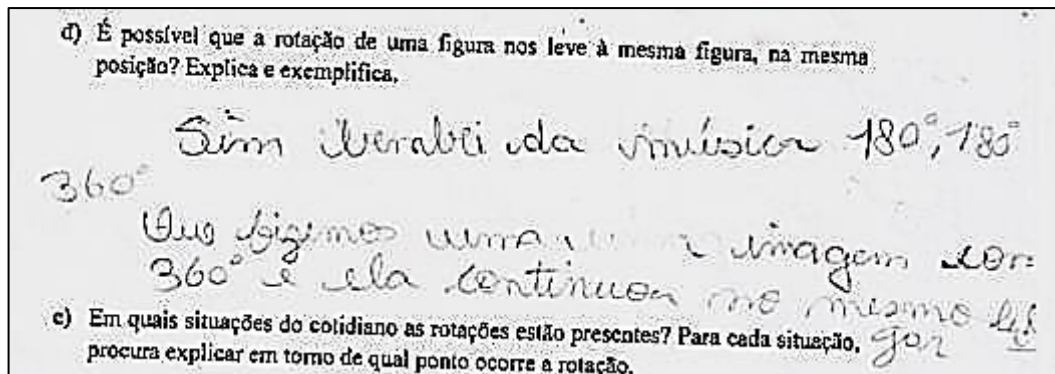 d) É possível que a rotação de uma figura nos leve à mesma figura, na mesma
posição? Explica e exemplifica.
Sim lembrei da música 180°, 180°
360°
Que fizemos uma imagem com
360° e ela continuou no mesmo lu
gar
e) Em quais situações do cotidiano as rotações estão presentes? Para cada situação,
procura explicar em torno de qual ponto ocorre a rotação.